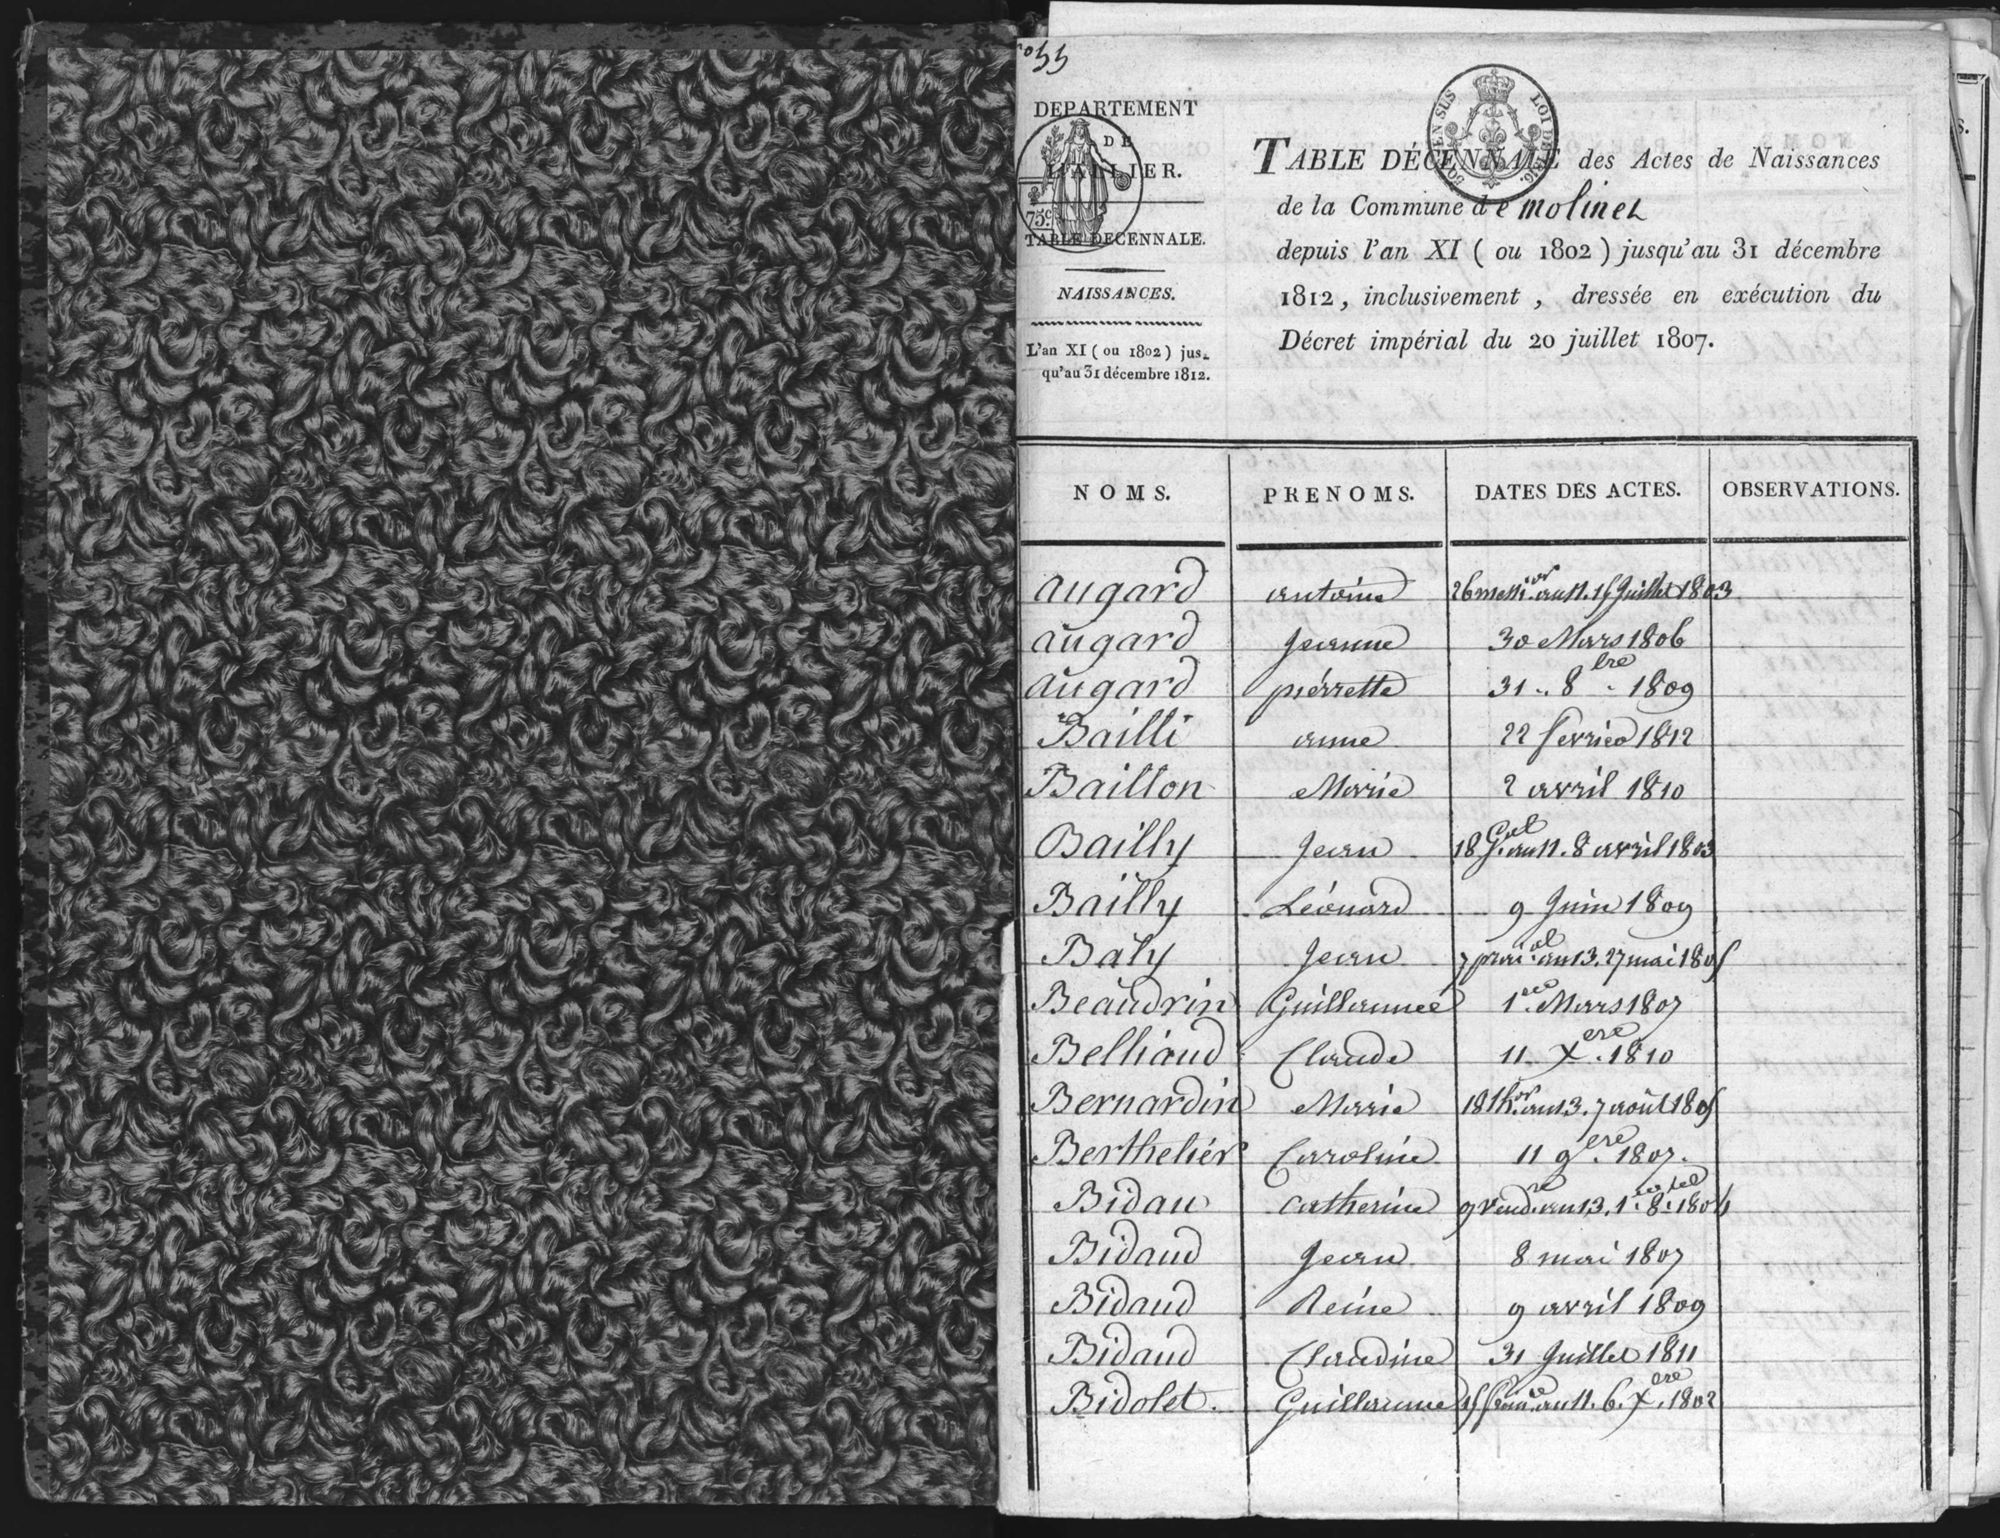 55
DEPARTEMENT
DE
L'ALLIER.
75 c
TABLE DECENNALE.
NAISSANCES.
L'an XI ( ou 1802 ) jus-
qu'au 31 décembre 1812.
LOI DE 1816.
EN SUS
TABLE DÉCENNALE des Actes de Naissances
de la Commune de molinet
depuis l'an XI ( ou 1802 ) jusqu'au 31 décembre
1812, inclusivement , dressée en exécution du
Décret impérial du 20 juillet 1807.
NOMS. PRENOMS. DATES DES ACTES. OBSERVATIONS.
augard antoine 26 messi.or an 11. 15 Juillet 1803
augard Jeanne 30 Mars 1806
augard pierrette 31 .. 8bre . 1809
Bailli anne 22 fevrier 1812
Baillon Marie 2 avril 1810
Bailly Jean 18 G.al an 11. 8 avril 1803
Bailly Léonard 9 Juin 1809
Baly Jean 7 prai.al an 13. 27 mai 1805
Beaudrin Guillaumee 1.er Mars 1807
Belliaud Claude 11. Xbre. 1810
Bernardin Marie 18 th.or an 13. 7 août 1805
Berthelier Caroline 11 9bre. 1807.
Bidau Catherine 9 Vend.re an 13. 1.er 8.bre 1804
Bidaud Jean 8 mai 1807
Bidaud Reine 9 avril 1809
Bidaud Claudine 31 Juillet 1811
Bidolet. Guillaume 15 frim.re an 11. 6. Xbre. 1802